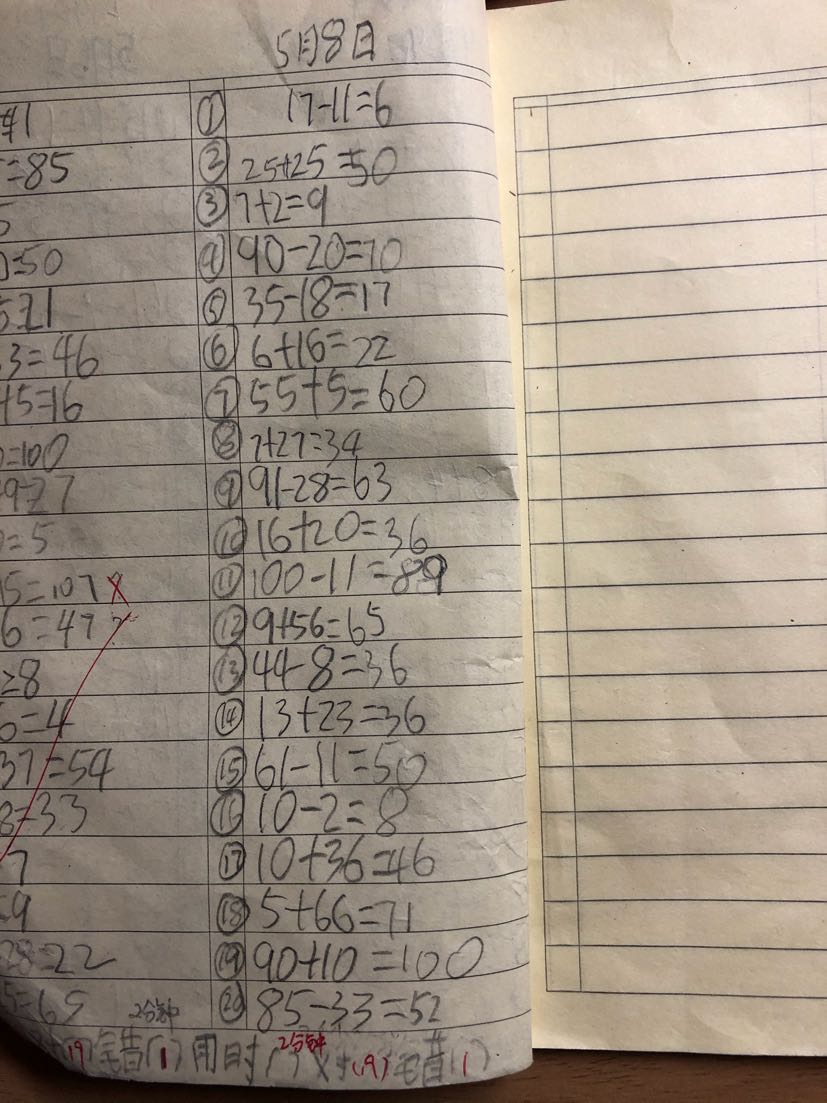 5月8日
=85
① 17-11=6
② 25+25=50
③ 7+2=9
=50
④ 90-20=70
⑤ 35-18=17
3=46
⑥ 6+16=22
+5=16
⑦ 55+5=60
=100
⑧ 7+27=34
⑨ 91-28=63
=5
⑩ 16+20=36
15=107 X
⑪ 100-11=89
6=47
⑫ 9+56=65
⑬ 44-8=36
6=4
⑭ 13+23=36
37=54
⑮ 61-11=50
8=33
⑯ 10-2=8
7
⑰ 10+36=46
=9
⑱ 5+66=71
28=22
⑲ 90+10=100
5=65 2分钟
⑳ 85-33=52
(19)错(1) 用时(2分钟)对(19)错(1)